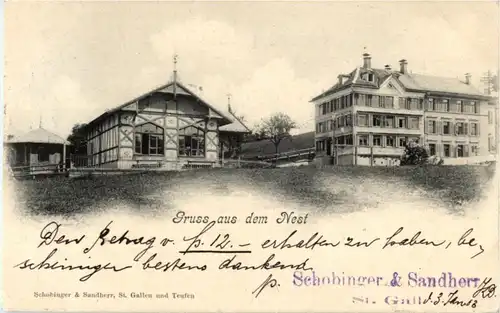 Gruss aus dem Nest
Den Betrag v. fr. 12.- erhalten zu haben, be-
scheinigen bestens dankend
p. Schobinger & Sandherr,
St. Gallen
d. 3. Jan.
Schobinger & Sandherr, St. Gallen und Teufen